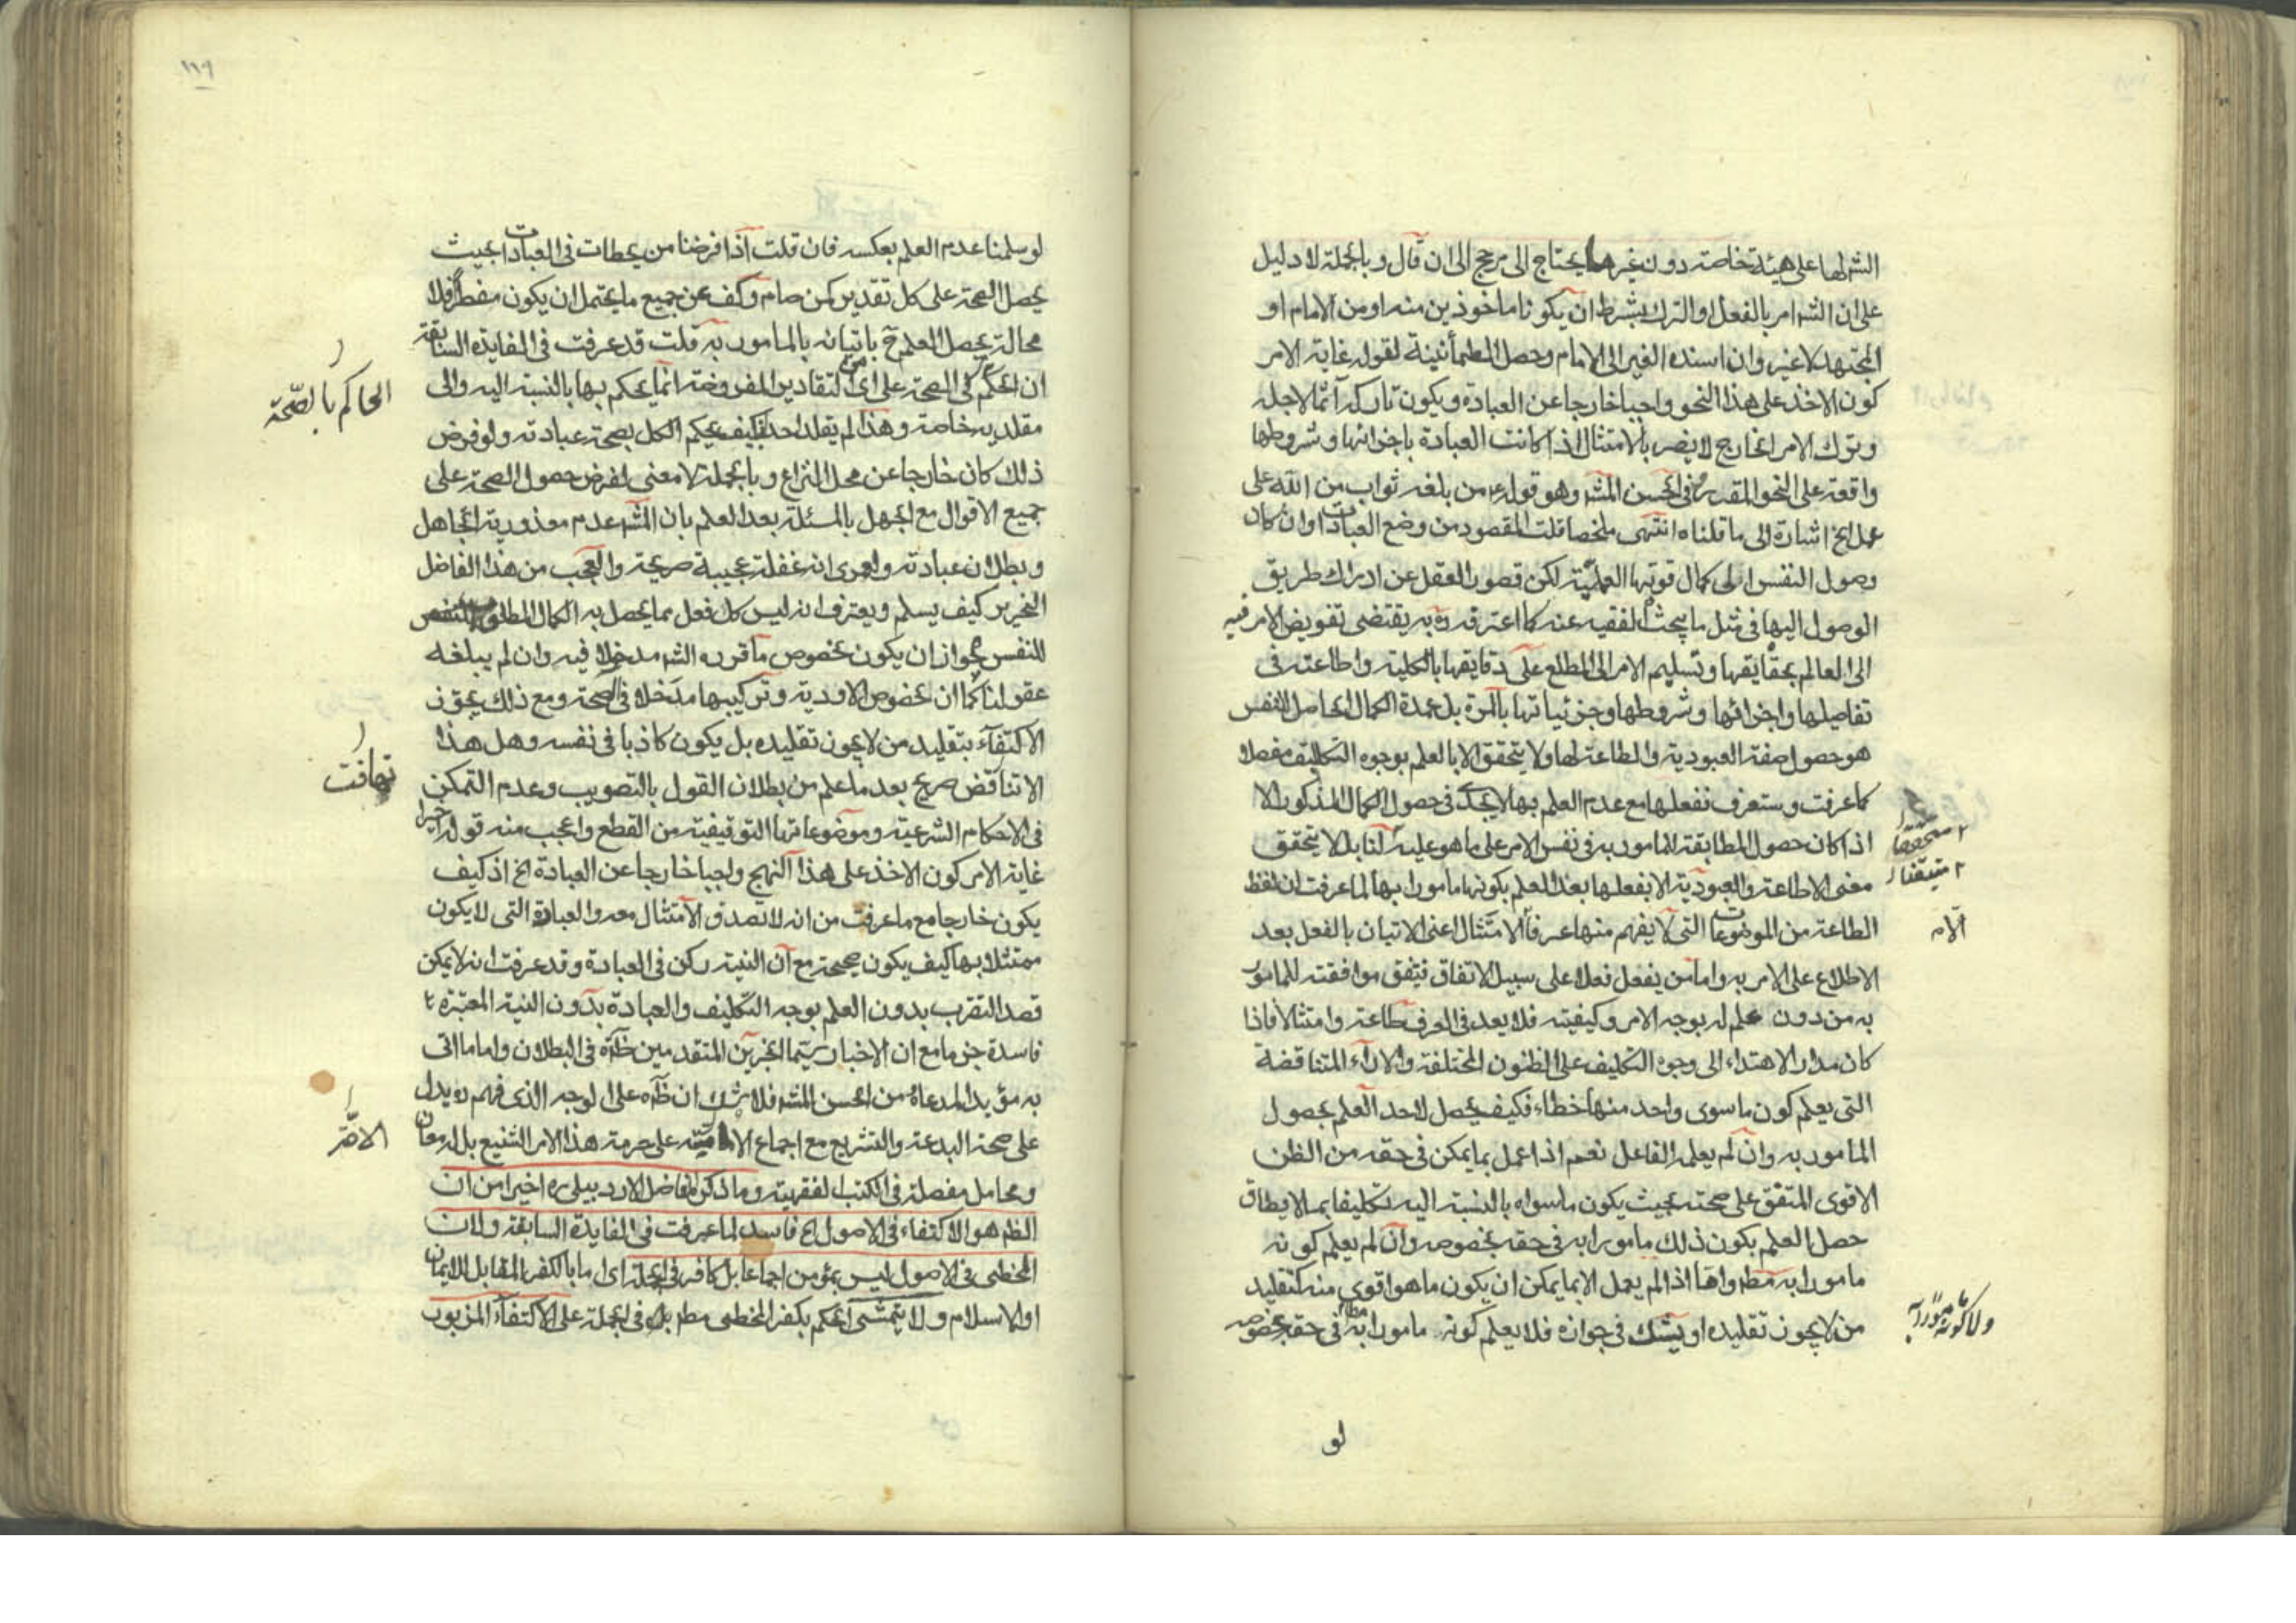 الشٰ لها على هيئة خاصة دون غيرها يحتاج الى مرجح الى ان قال وبالجملة لا دليل
على ان الشٰ امر بالفعل او الترك بشرط ان يكونا ماخوذين منه او من الامام او
المجتهد لا غير وان اسنده الغير الى الامام وحصل الطمأنينة لقوله غاية الامر
كون الاخذ على هذا النحو واجبا خارجا عن العبادة ويكون تاركه آثما لاجله
وترك الامر الخارج لا يضر بالامتثال اذا كانت العبادة باجزائها وشروطها
واقعة على النحو المقدر وفى الحسن المشٰ وهو قوله ع من بلغه ثواب من الله على
عمل الخ اشارة الى ما قلناه انتهى ملخصا قلت المقصود من وضع العبادات وان كان
وصول النفس الى كمال قوتها العملية لكن قصور العقل عن ادراك طريق
الوصول اليها فى مثل ما يبحث الفقيه عنه كما اعترف ره به يقتضى تفويض الامر فيه
الى العالم بحقايقها وتسليم الامر الى المطلع على دقايقها بالكلية واطاعته فى
تفاصيلها واجزائها وشروطها وجزئياتها بالمرة بل عمدة الكمال الحاصل للنفس
هو حصول صفة العبودية والطاعة لها ولا يتحقق الا بالعلم بوجوه التكليف مفصلا
كما عرفت وستعرف ففعلها مع عدم العلم بها لا يجدى فى حصول الكمال المذكور الا
اذا كان حصول المطابقة للمامور به فى نفس الامر على ما هو عليه لنا بل لا يتحقق
معنى الاطاعة والعبودية الا بفعلها بعد العلم بكونها مامورا بها لما عرفت ان لفظ
الطاعة من الموضوعات التى لا يفهم منها عرفا الا الامتثال اعنى الاتيان بالفعل بعد
الاطلاع على الامر به واما من يفعل فعلا على سبيل الاتفاق فيتفق موافقته للمامور
به من دون علم له بوجه الامر وكيفيته فلا يعد فى العرف طاعة وامتثالا فاذا
كان مدار الاهتداء الى وجوه التكليف على الظنون المختلفة والاراء المتناقضة
التى يعلم كون ما سوى واحد منها خطاء فكيف يحصل لاحد العلم بحصول
المامور به وان لم يعلمه الفاعل نعم اذا عمل بما يمكن فى حقه من الظن
الاقوى المتفق على صحته بحيث يكون ما سواه بالنسبة اليه تكليفا بما لا يطاق
حصل العلم بكون ذلك مامورا به فى حقه بخصوصه وان لم يعلم كونه
مامورا به مط واما اذا لم يعمل الا بما يمكن ان يكون ما هو اقوى منه كتقليد
من لا يجوز تقليده او يشك فى جوازه فلا يعلم كونه مامورا به مطٰ فى حقه بخصوصه
متحققا
متيقنا
ولا كونه مامورا به
لو
١١٩
لو سلمنا عدم العلم بعكسه فان قلت اذا فرضنا من يحطات فى العبادات بحيث
يحصل الصحة على كل تقدير كمن صام وكف عن جميع ما يحتمل ان يكون مفطرا فلا
محالة يحصل العلم ح باتيانه بالمامور به قلت قد عرفت فى الفايدة السابقة
ان الحكم فى الصحة على اى من التقادير المفروضة انما يحكم بها بالنسبة اليه والى
مقلديه خاصة وهذا لم يقلد احدا فكيف يحكم الكل بصحة عبادته ولو فرض
ذلك كان خارجا عن محل النزاع وبالجملة لا معنى لفرض حصول الصحة على
جميع الاقوال مع الجهل بالمسئلة بعد العلم بان المشٰ عدم معذورية الجاهل
وبطلان عبادته ولعمرى انه غفلة عجيبة صريحة والعجب من هذا الفاضل
النحرير كيف يسلم ويعترف انه ليس كل فعل مما يحصل به الكمال المطلوب
للنفس لجواز ان يكون بخصوص ما قرره الشٰ مدخلا فيه وان لم يبلغه
عقولنا كما ان بخصوص الادوية وتركيبها مدخلا فى الصحة ومع ذلك يجوز
الاكتفاء بتقليد من لا يجوز تقليده بل يكون كاذبا فى نفسه وهل هذا
الا تناقض صريح بعد ما علم من بطلان القول بالتصويب وعدم التمكن
فى الاحكام الشرعية وموضوعاتها التوقيفية من القطع واعجب منه قوله اخيرا
غاية الامر كون الاخذ على هذا النهج واجبا خارجا عن العبادة الخ اذ كيف
يكون خارجا مع ما عرفت من انه لا تصدق الامتثال معه والعبادة التى لا يكون
ممتثلا بها كيف يكون صحيحة مع ان النية ركن فى العبادة وقد عرفت انه لا يمكن
قصد التقرب بدون العلم بوجه التكليف والعبادة بدون النية المعتبرة
فاسدة جزما مع ان الاخبار سيما الخبرين المتقدمين ظاهرة فى البطلان واما ما اتى
به مؤيدا لمدعاه من الحسن المشٰ فلا شك ان ظاهره على الوجه الذى فهمه ره يدل
على صحة البدعة والتشريع مع اجماع الامامية على حرمة هذا الامر الشنيع بل له معان
ومحامل مفصلة فى الكتب الفقهية وما ذكره الفاضل الاردبيلى ره اخيرا من ان
الظم هو الاكتفاء فى الاصول الخ فاسد لما عرفت فى الفايدة السابقة ولان
المخطى فى الاصول ليس بمؤمن اجماعا بل كافر فى الجملة اى اما بالكفر المقابل للايمان
او الاسلام ولا يتمشى الحكم بكفر المخطى مطم بل فى الجملة على الاكتفاء المزبور
الحاكم بالصحة
تهافت